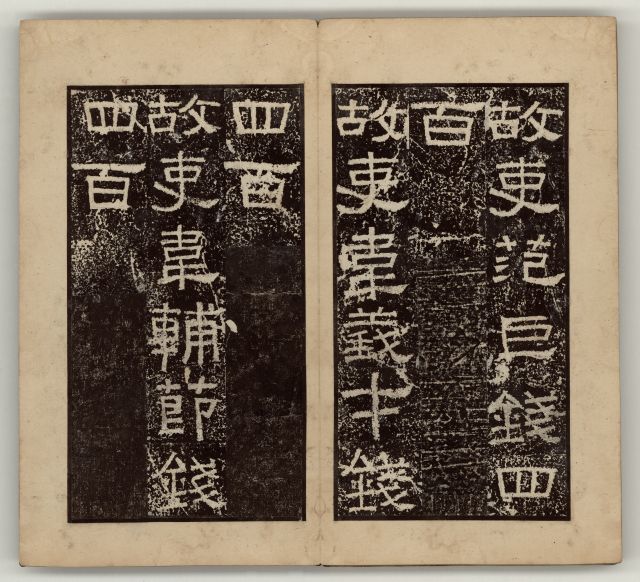 故吏范巨錢四
百
故吏韋義才錢
四百
故吏韋輔節錢
四百